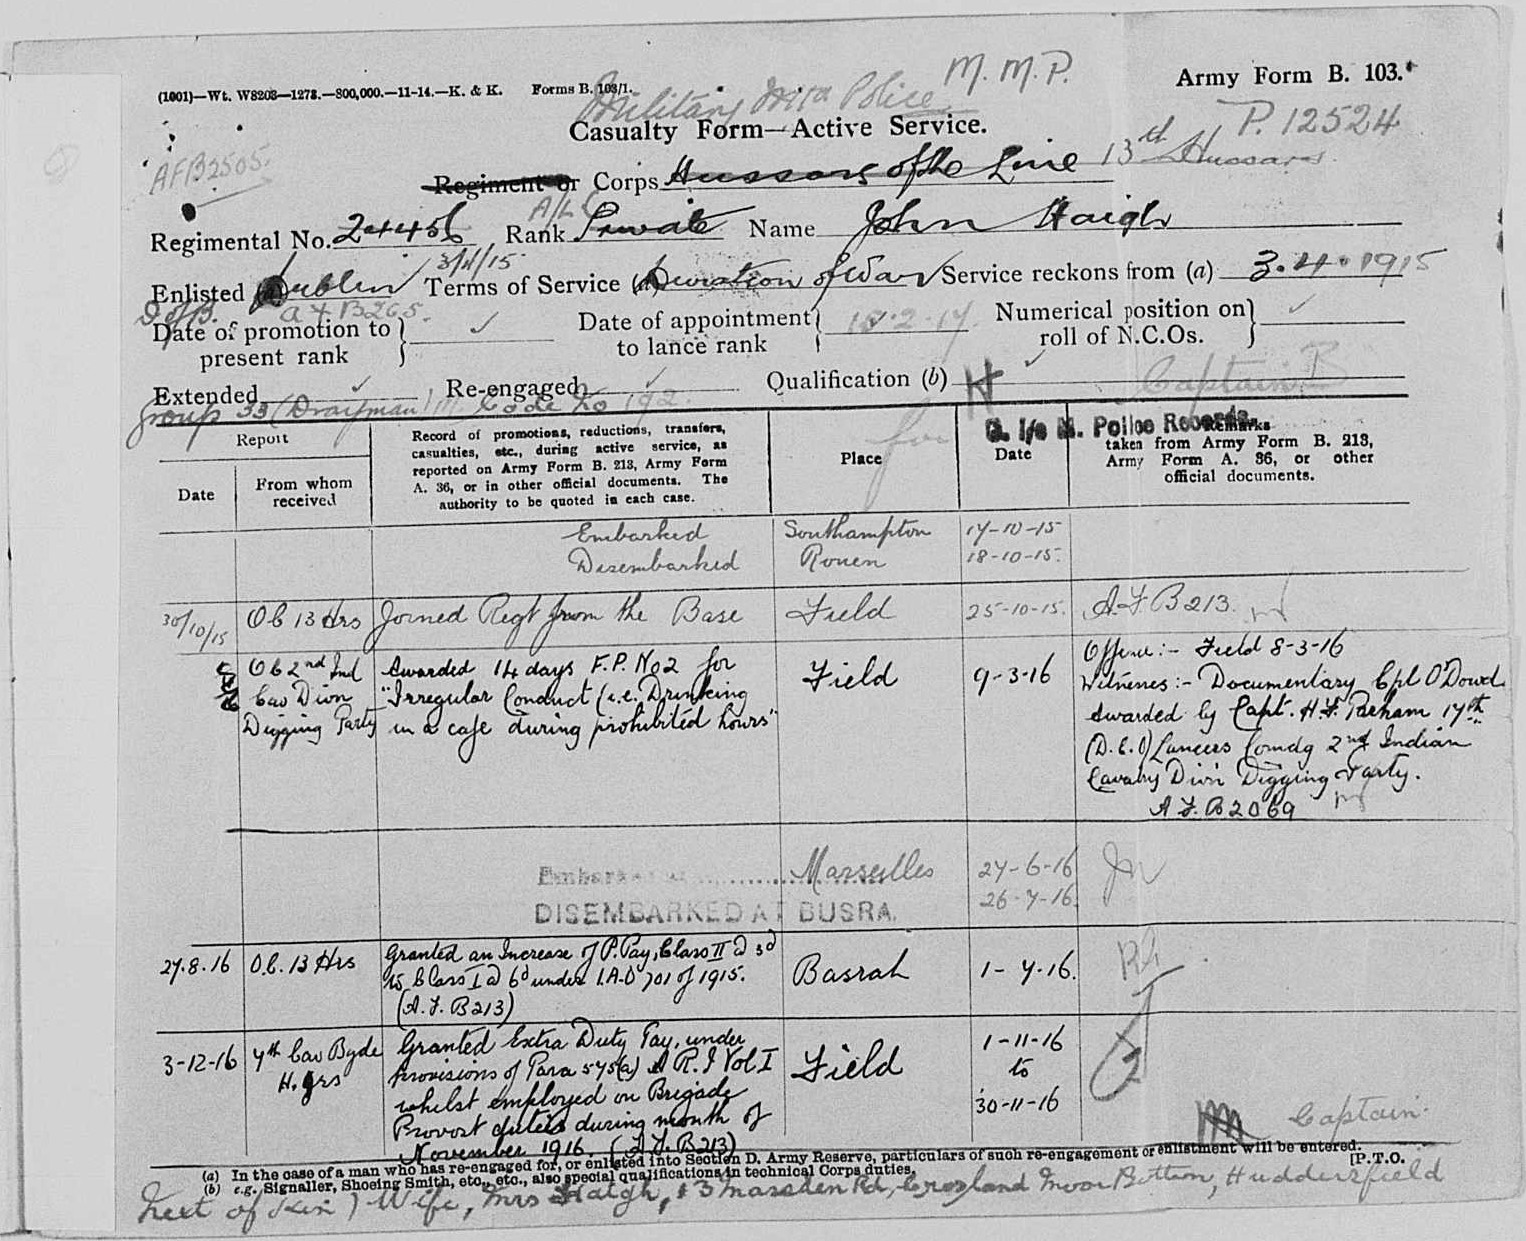 (1001)—Wt. W8203—1273.—800,000.—11-14.—K. & K. Forms B. 103/1.
M. M. P.
Army Form B. 103.
Military Police
Casualty Form—Active Service.
P. 12524
AFB2505.
Regiment or Corps Hussars of the Line 13th Hussars
A/LC
Regimental No. 24456 Rank Private Name John Haigh
3/4/15
Enlisted Dublin Terms of Service (a) Duration of War Service reckons from (a) 3.4.1915
D of B. a F B265.
Date of promotion to present rank
Date of appointment to lance rank
Numerical position on roll of N.C.Os.
Extended Re-engaged Qualification (b) H
Captain
Group 33 (Drayman) Code No 192.
for
M. Police Records.
Report
Date
From whom received
Record of promotions, reductions, transfers, casualties, etc., during active service, as reported on Army Form B. 213, Army Form A. 36, or in other official documents. The authority to be quoted in each case.
Place
Date
Remarks taken from Army Form B. 213, Army Form A. 36, or other official documents.
Embarked Southampton 17-10-15
Disembarked Rouen 18-10-15.
30/10/15 OC 13 Hrs Joined Regt from the Base Field 25-10-15. A.F. B 213.
OC 2nd Ind Cav Divn Digging Party
Awarded 14 days F.P. No2 for
"Irregular Conduct (i.e. Drinking
in a cafe during prohibited hours"
Field 9-3-16
Offence:- Field 8-3-16
Witnesses:- Documentary Cpl O'Dowd
Awarded by Capt. H.F. Parham 17th
(D.C.O) Lancers Comdg 2nd Indian
Cavalry Divn Digging Party.
A.F. B 2069
Embarked at Marseilles 27-6-16
DISEMBARKED AT BUSRA. 26-7-16.
27.8.16 O.C. 13 Hrs
Granted an Increase of P. Pay, Class II @ 3d
to Class I @ 6d under I.A.O 701 of 1915.
(A.F. B213)
Basrah 1-7-16.
3-12-16 7th Cav Bgde H.Qrs
Granted Extra Duty Pay, under
provisions of Para 575(a) A R.I Vol I
whilst employed on Brigade
Provost duties during month of
November 1916. (A.F. B213)
Field
1-11-16
to
30-11-16
Captain
(a) In the case of a man who has re-engaged for, or enlisted into Section D, Army Reserve, particulars of such re-engagement or enlistment will be entered.
(b) e.g. Signaller, Shoeing Smith, etc., etc., also special qualifications in technical Corps duties.
[P.T.O.
Next of Kin) Wife, Mrs Haigh, 13 Marsden Rd, Crosland Moor Bottom, Huddersfield